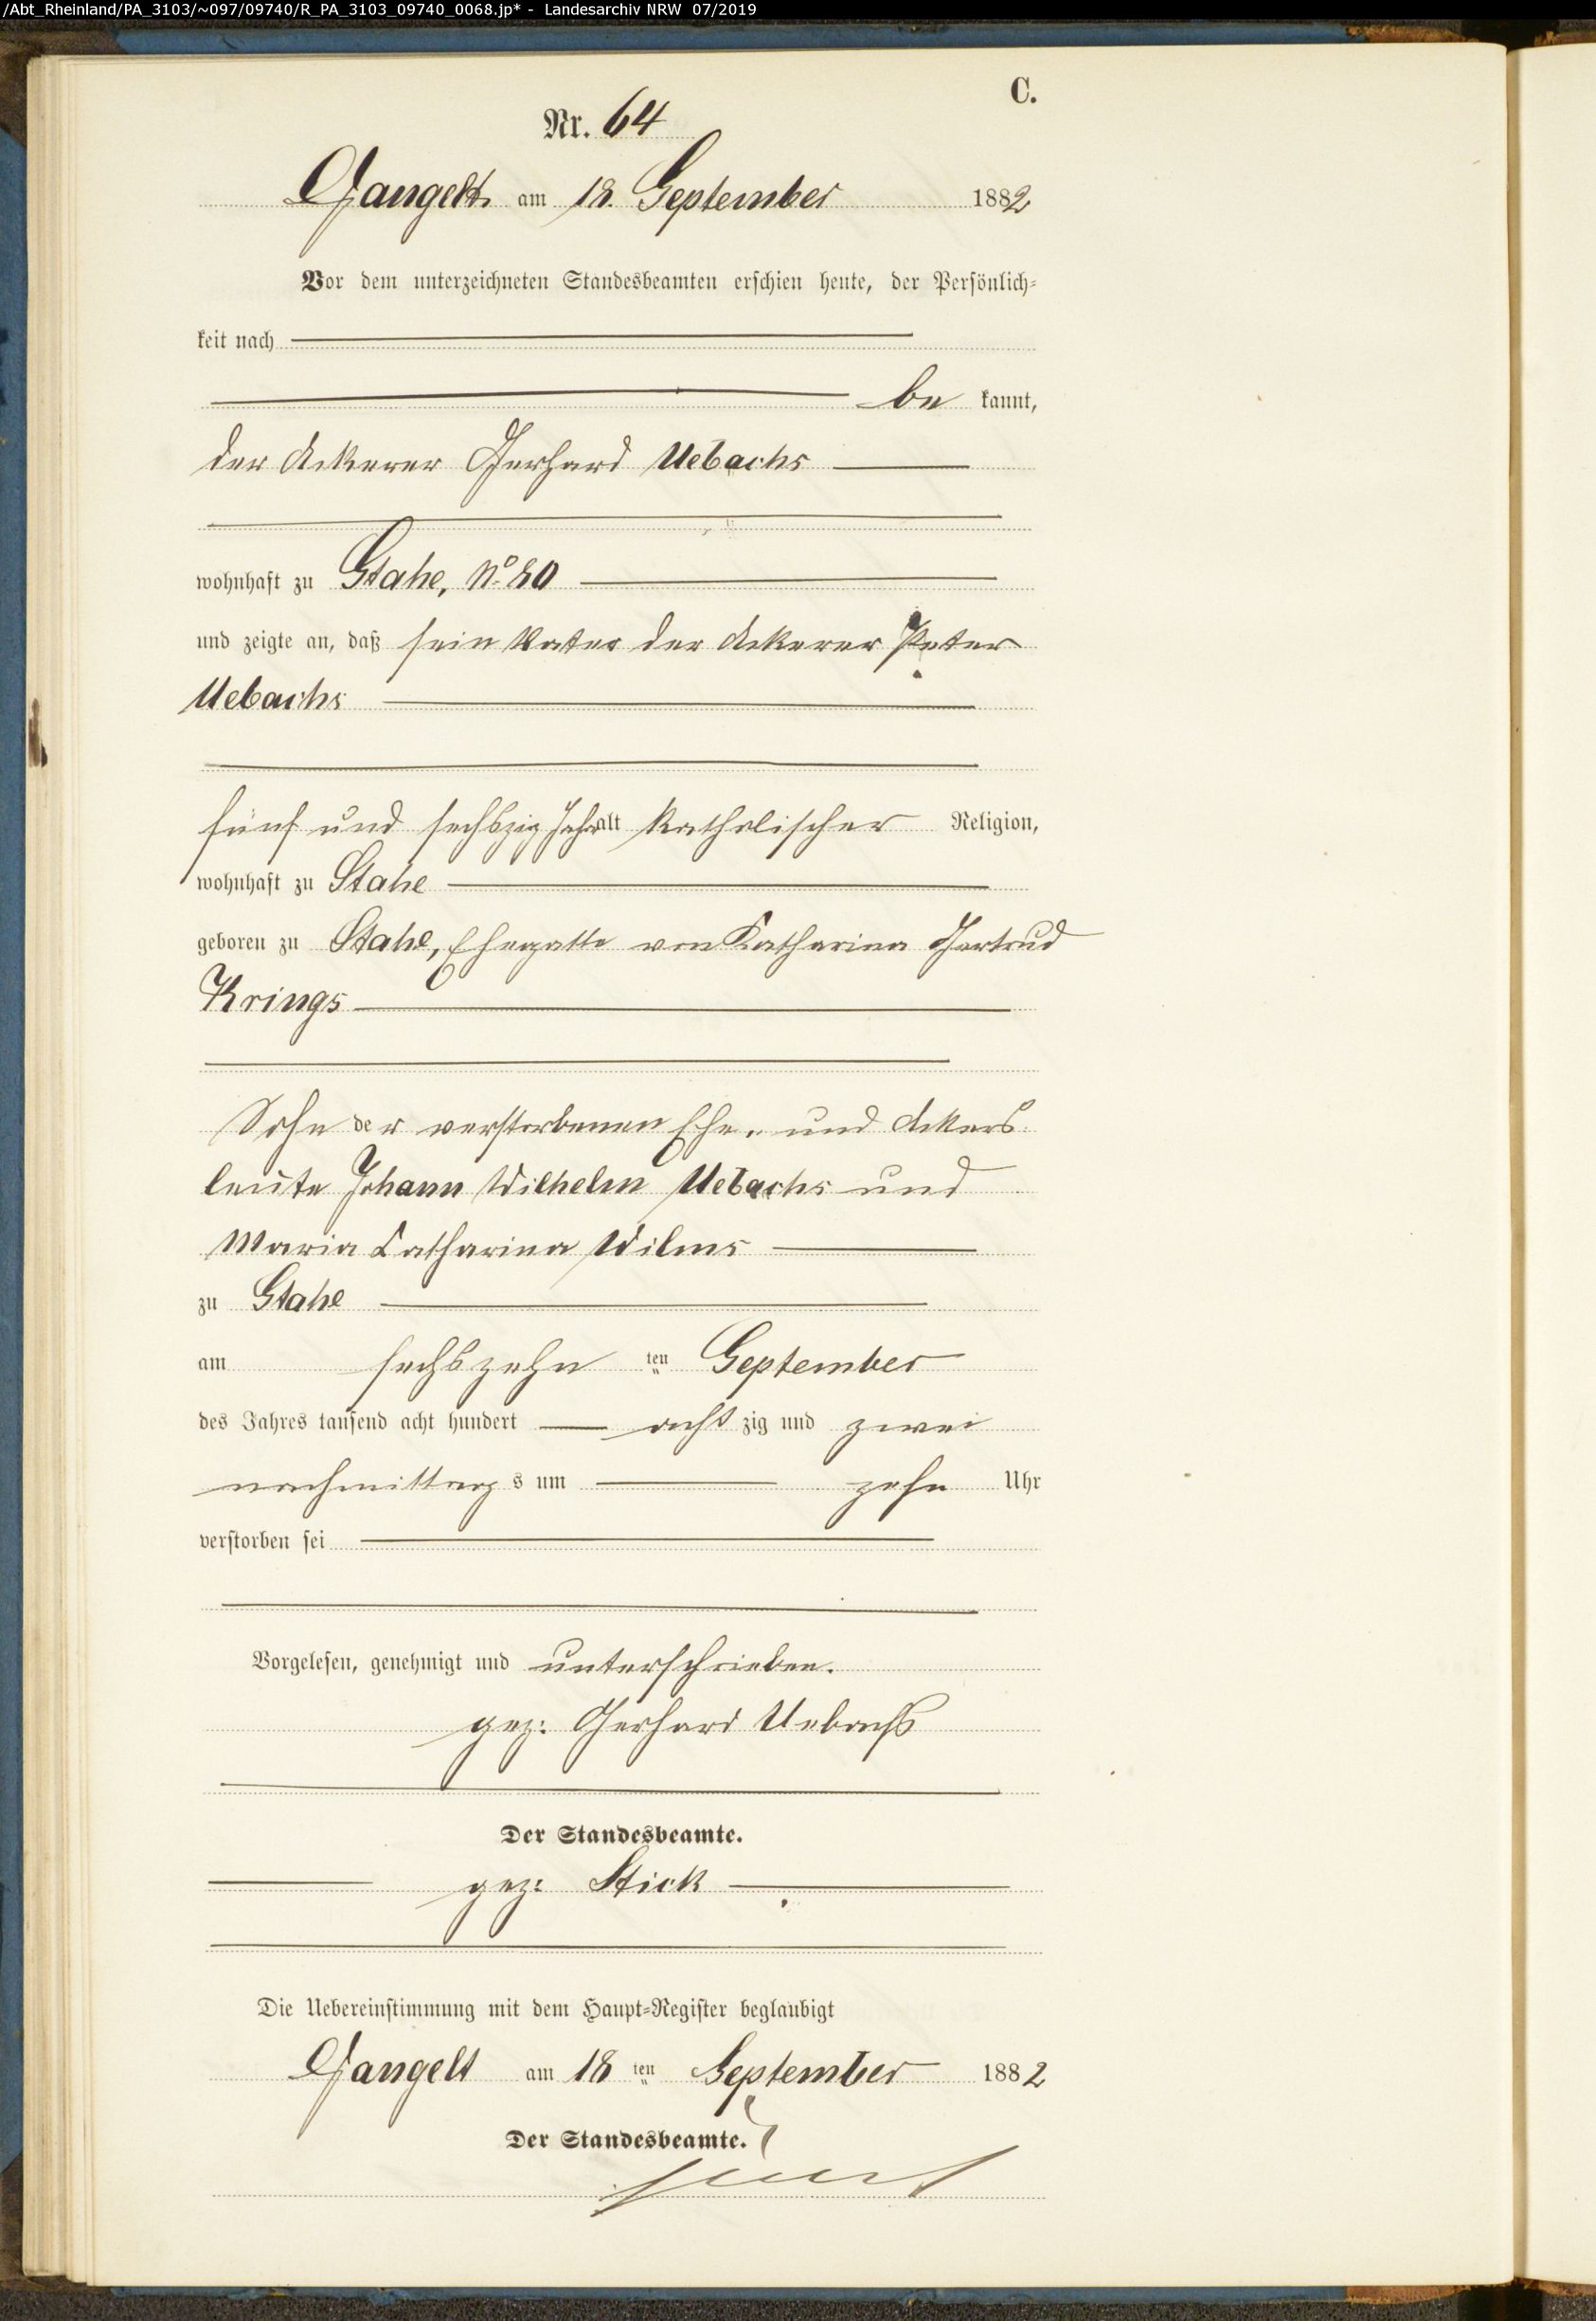 /Abt_Rheinland/PA_3103/~097/09740/R_PA_3103_09740_0068.jp* - Landesarchiv NRW 07/2019
C.
Nr. 64
Gangelt am 18. September 1882
Vor dem unterzeichneten Standesbeamten erschien heute, der Persönlich-
keit nach
be kannt,
der Ackerer Gerhard Uebachs
wohnhaft zu Stahe, No 80
und zeigte an, daß sein Vater der Ackerer Peter
Uebachs
fünf und sechszig Jahr alt katholischer Religion,
wohnhaft zu Stahe
geboren zu Stahe, Ehegatte von Katharina Gertrud
Krings
Sohn der verstorbenen Ehe- und Ackers
leute Johann Wilhelm Uebachs und
Maria Catharina Wilms
zu Stahe
am sechszehn ten September
des Jahres tausend acht hundert acht zig und zwei
nachmittag s um zehn Uhr
verstorben sei
Vorgelesen, genehmigt und unterschrieben.
gez: Gerhard Uebachs
Der Standesbeamte.
gez: Stick
Die Uebereinstimmung mit dem Haupt-Register beglaubigt
Gangelt am 18 ten September 1882
Der Standesbeamte.